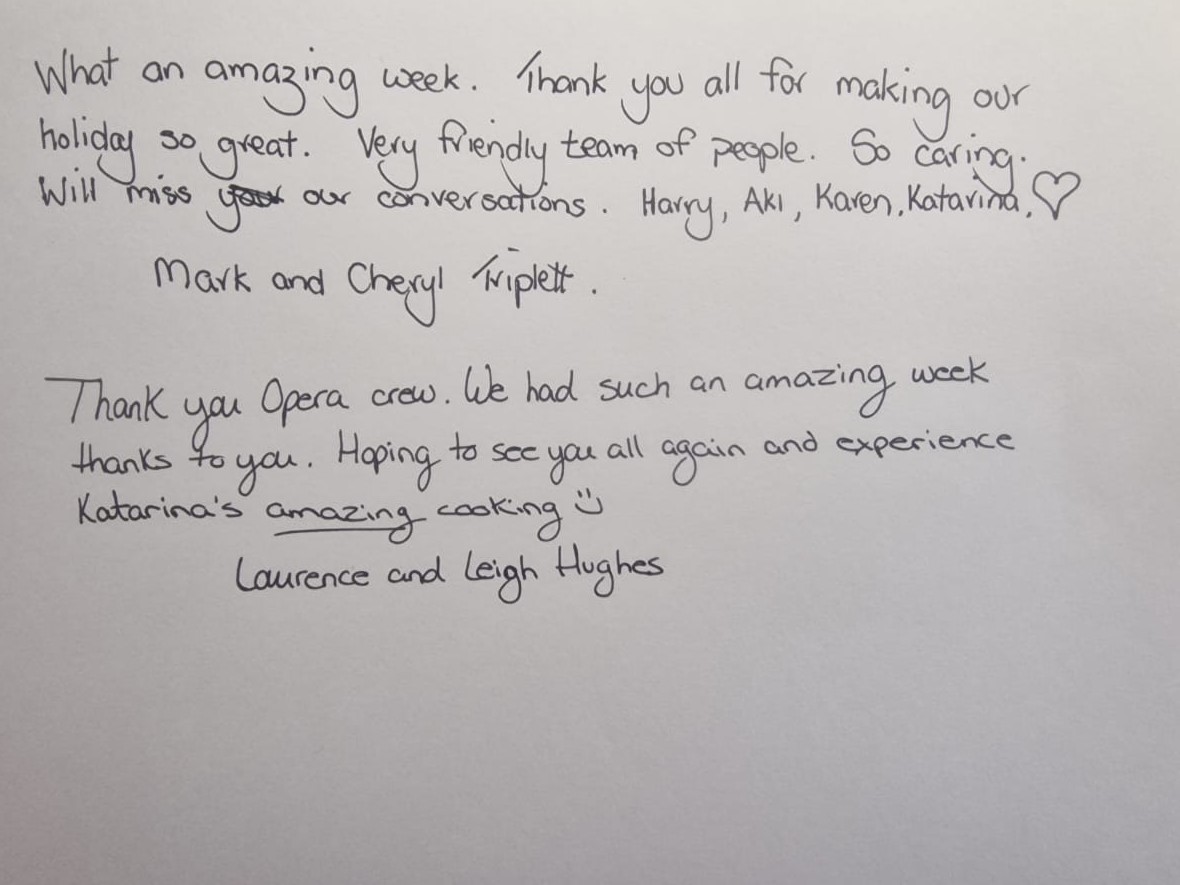 What an amazing week. Thank you all for making our
holiday so great. Very friendly team of people. So caring.
Will miss our conversations. Harry, Aki, Karen, Katarina. ♡
Mark and Cheryl Triplett.
Thank you Opera crew. We had such an amazing week
thanks to you. Hoping to see you all again and experience
Katarina's amazing cooking ☺
Laurence and Leigh Hughes